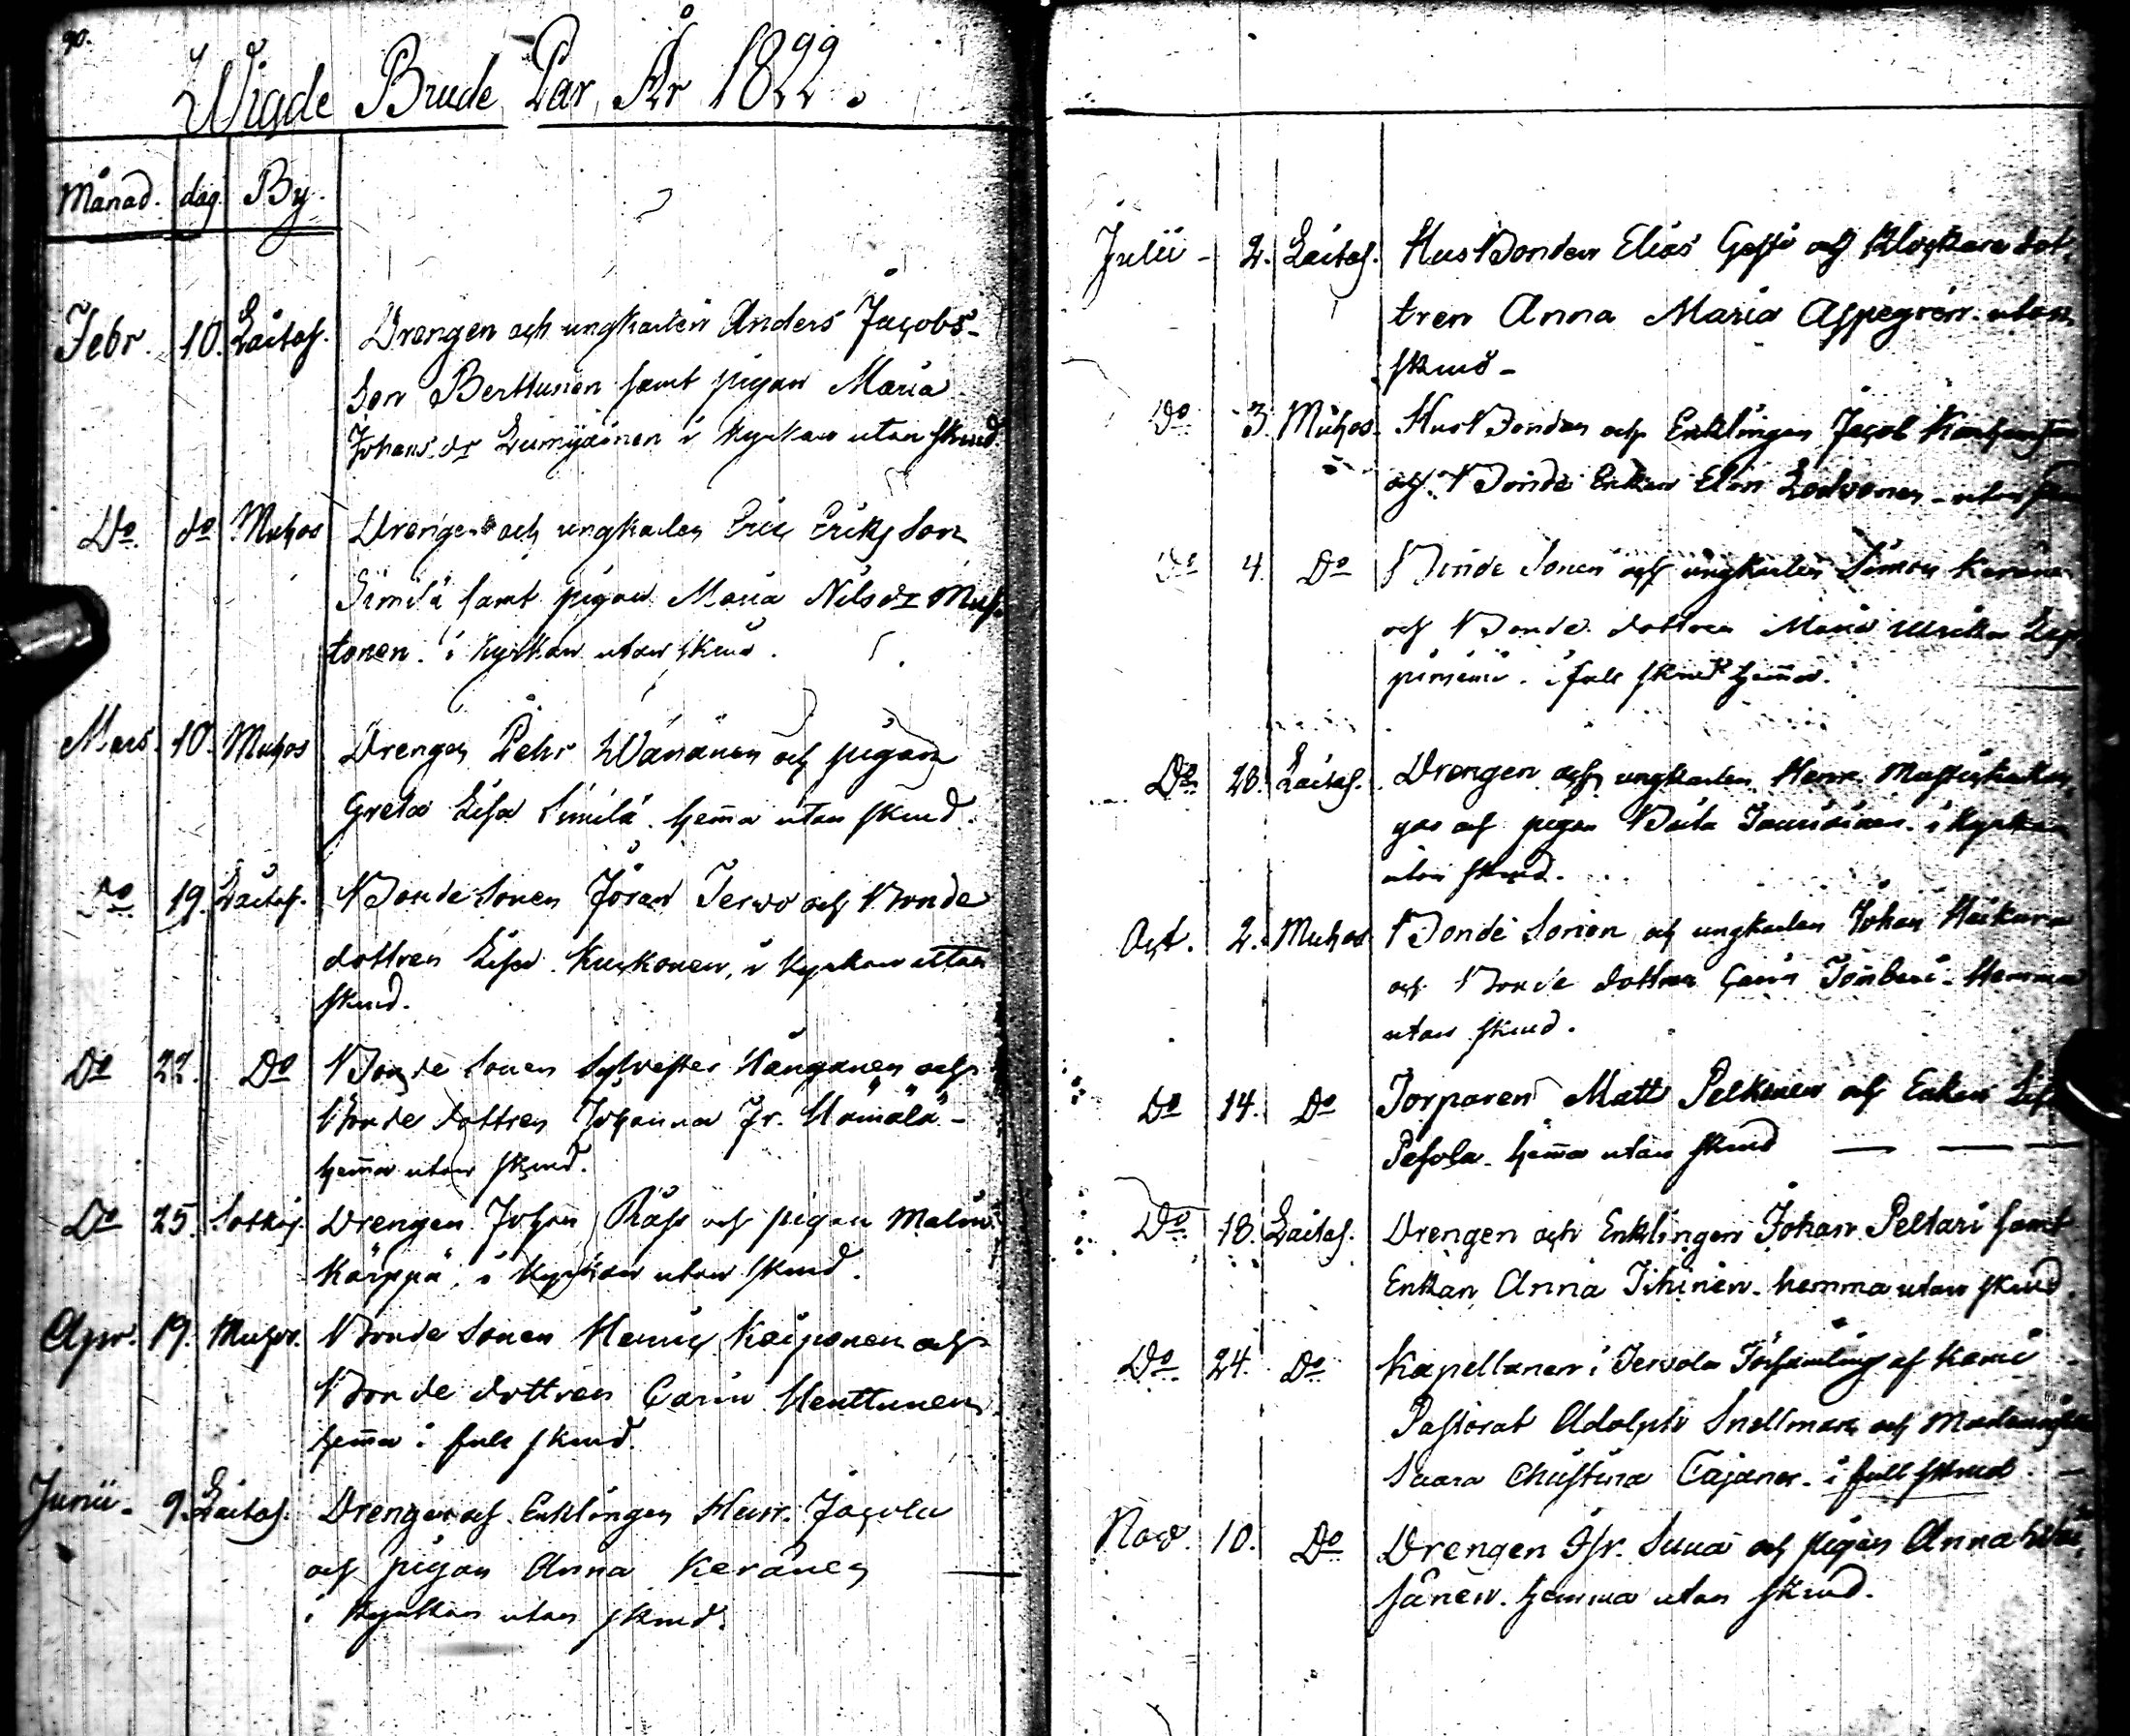 90.
Wigde Brude Par, År 1822.
Månad. dag. By.
Febr. 10. Laitas. Drengen och ungkarlen Anders Jacobs-
son Berttunen samt pigan Maria
Johans dr Lumijäinen i Kyrkan utan skrud.
Do do Muhos Drengen och ungkarlen Eric Ericks Son
Similä samt pigan Maria Nils dr Mus-
tonen. i Kyrkan utan skrud.
Mars. 10. Muhos Drengen Pehr Wänänen och pigan
Greta Lisa Similä. hema utan skrud.
Do 19. Laitas. Bonde Sonen Jöran Terwo och Bonde
dottren Lisa Kurkonen, i Kyrkan utan
skrud.
Do 22. Do Bonde Sonen Sylvester Känganen och
Bonde dottren Johanna Jr. Hämälä-
hema utan skrud.
Do 25. Sotkaj. Drengen Johan Räss och pigan Malin
Kärppä, i Kyrkan utan skrud.
Apr. 19. Muhos. Bonde Sonen Henric Kaiponen och
Bonde dottren Carin Henttunen
hema i full skrud.
Junii. 9. Laitas. Drengen och Enklingen Henr. Jacola
och pigan Anna Keränen
i Kyrkan utan skrud.
Julii - 2. Laitas. Husbonden Elias och Klockare dot-
tren Anna Maria Aspegren. utan
skrud -
Do 3. Muhos. Husbonden och Enklingen Jacob
och Bonde Enkan Elin - utan
Do 4. Do Bonde Sonen och ungkarlen Simon
och Bonde dottren Maria Ulrika Lap-
. i full skrud hema.
Do 28. Laitas. Drengen och ungkarlen Henr.
och pigan Beata . i Kyrkan
utan skrud.
Oct. 2. Muhos Bonde Sonen och ungkarlen Johan
och Bonde dottren Carin . Hemma
utan skrud.
Do 14. Do Torparen Matts Pelkonen och Enkan Lisa
Pesola. hema utan skrud
Do 18. Laitas. Drengen och Enklingen Johan Peltari samt
Enkan Anna Tihinen. hemma utan skrud.
Do 24. Do Kapellanen i Tervola Församling af Kemi
Pastorat Adolph Snellman och
Christina Cajaner. i full skrud. -
Nov. 10. Do Drengen Isr. och pigan Anna
sänen. hemma utan skrud.